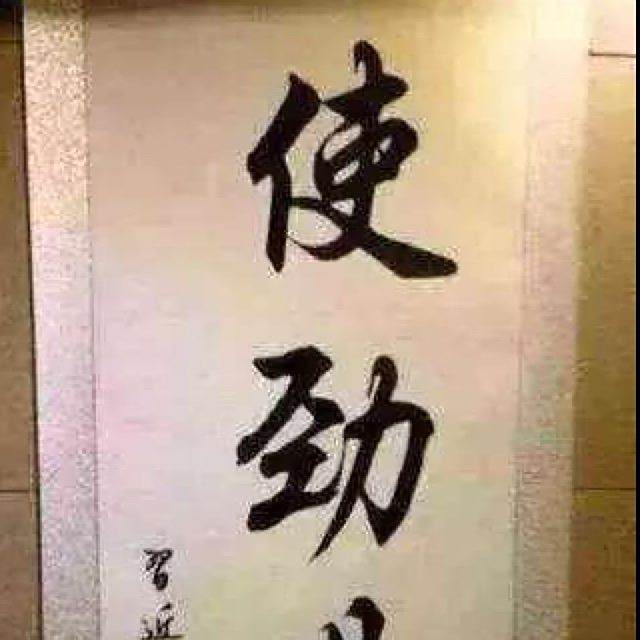 使劲
习近